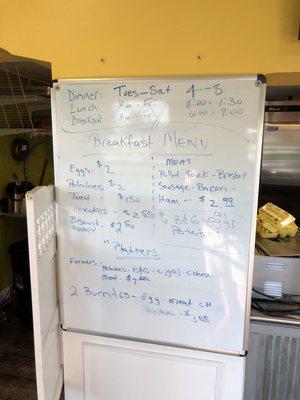 Dinner: Tues-Sat 4-8
Lunch Mon-Fri 11:00-1:30
Breakfast Mon-Fri 6:00-9:00
Breakfast MENU
Eggs - $2
Potatoes $2
Toast $1.50
Pancakes - $2.50
Biscuit $2.50
Gravy
MEAT
Pulled Pork - Brisket
Sausage - Bacon -
Ham - $2.99
B&G - Eggs (2)
Potatoes
"Platters"
Farmers:
Potatoes - B&G - Egg(2) Cheese
Meat - $
2 Burritos - Egg meat CH
Potatoes - $